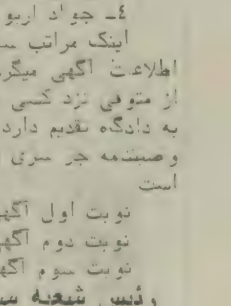 ٤ـ جواد اربو
اینک مراتب
اطلاعت آگهی میگر
از متوفی نزد کسی
به دادگاه تقدیم دارد
وصیتنامه جز سری
است
نوبت اول آگهی
نوبت دوم آگهی
نوبت سوم آگهی
رئیس شعبه